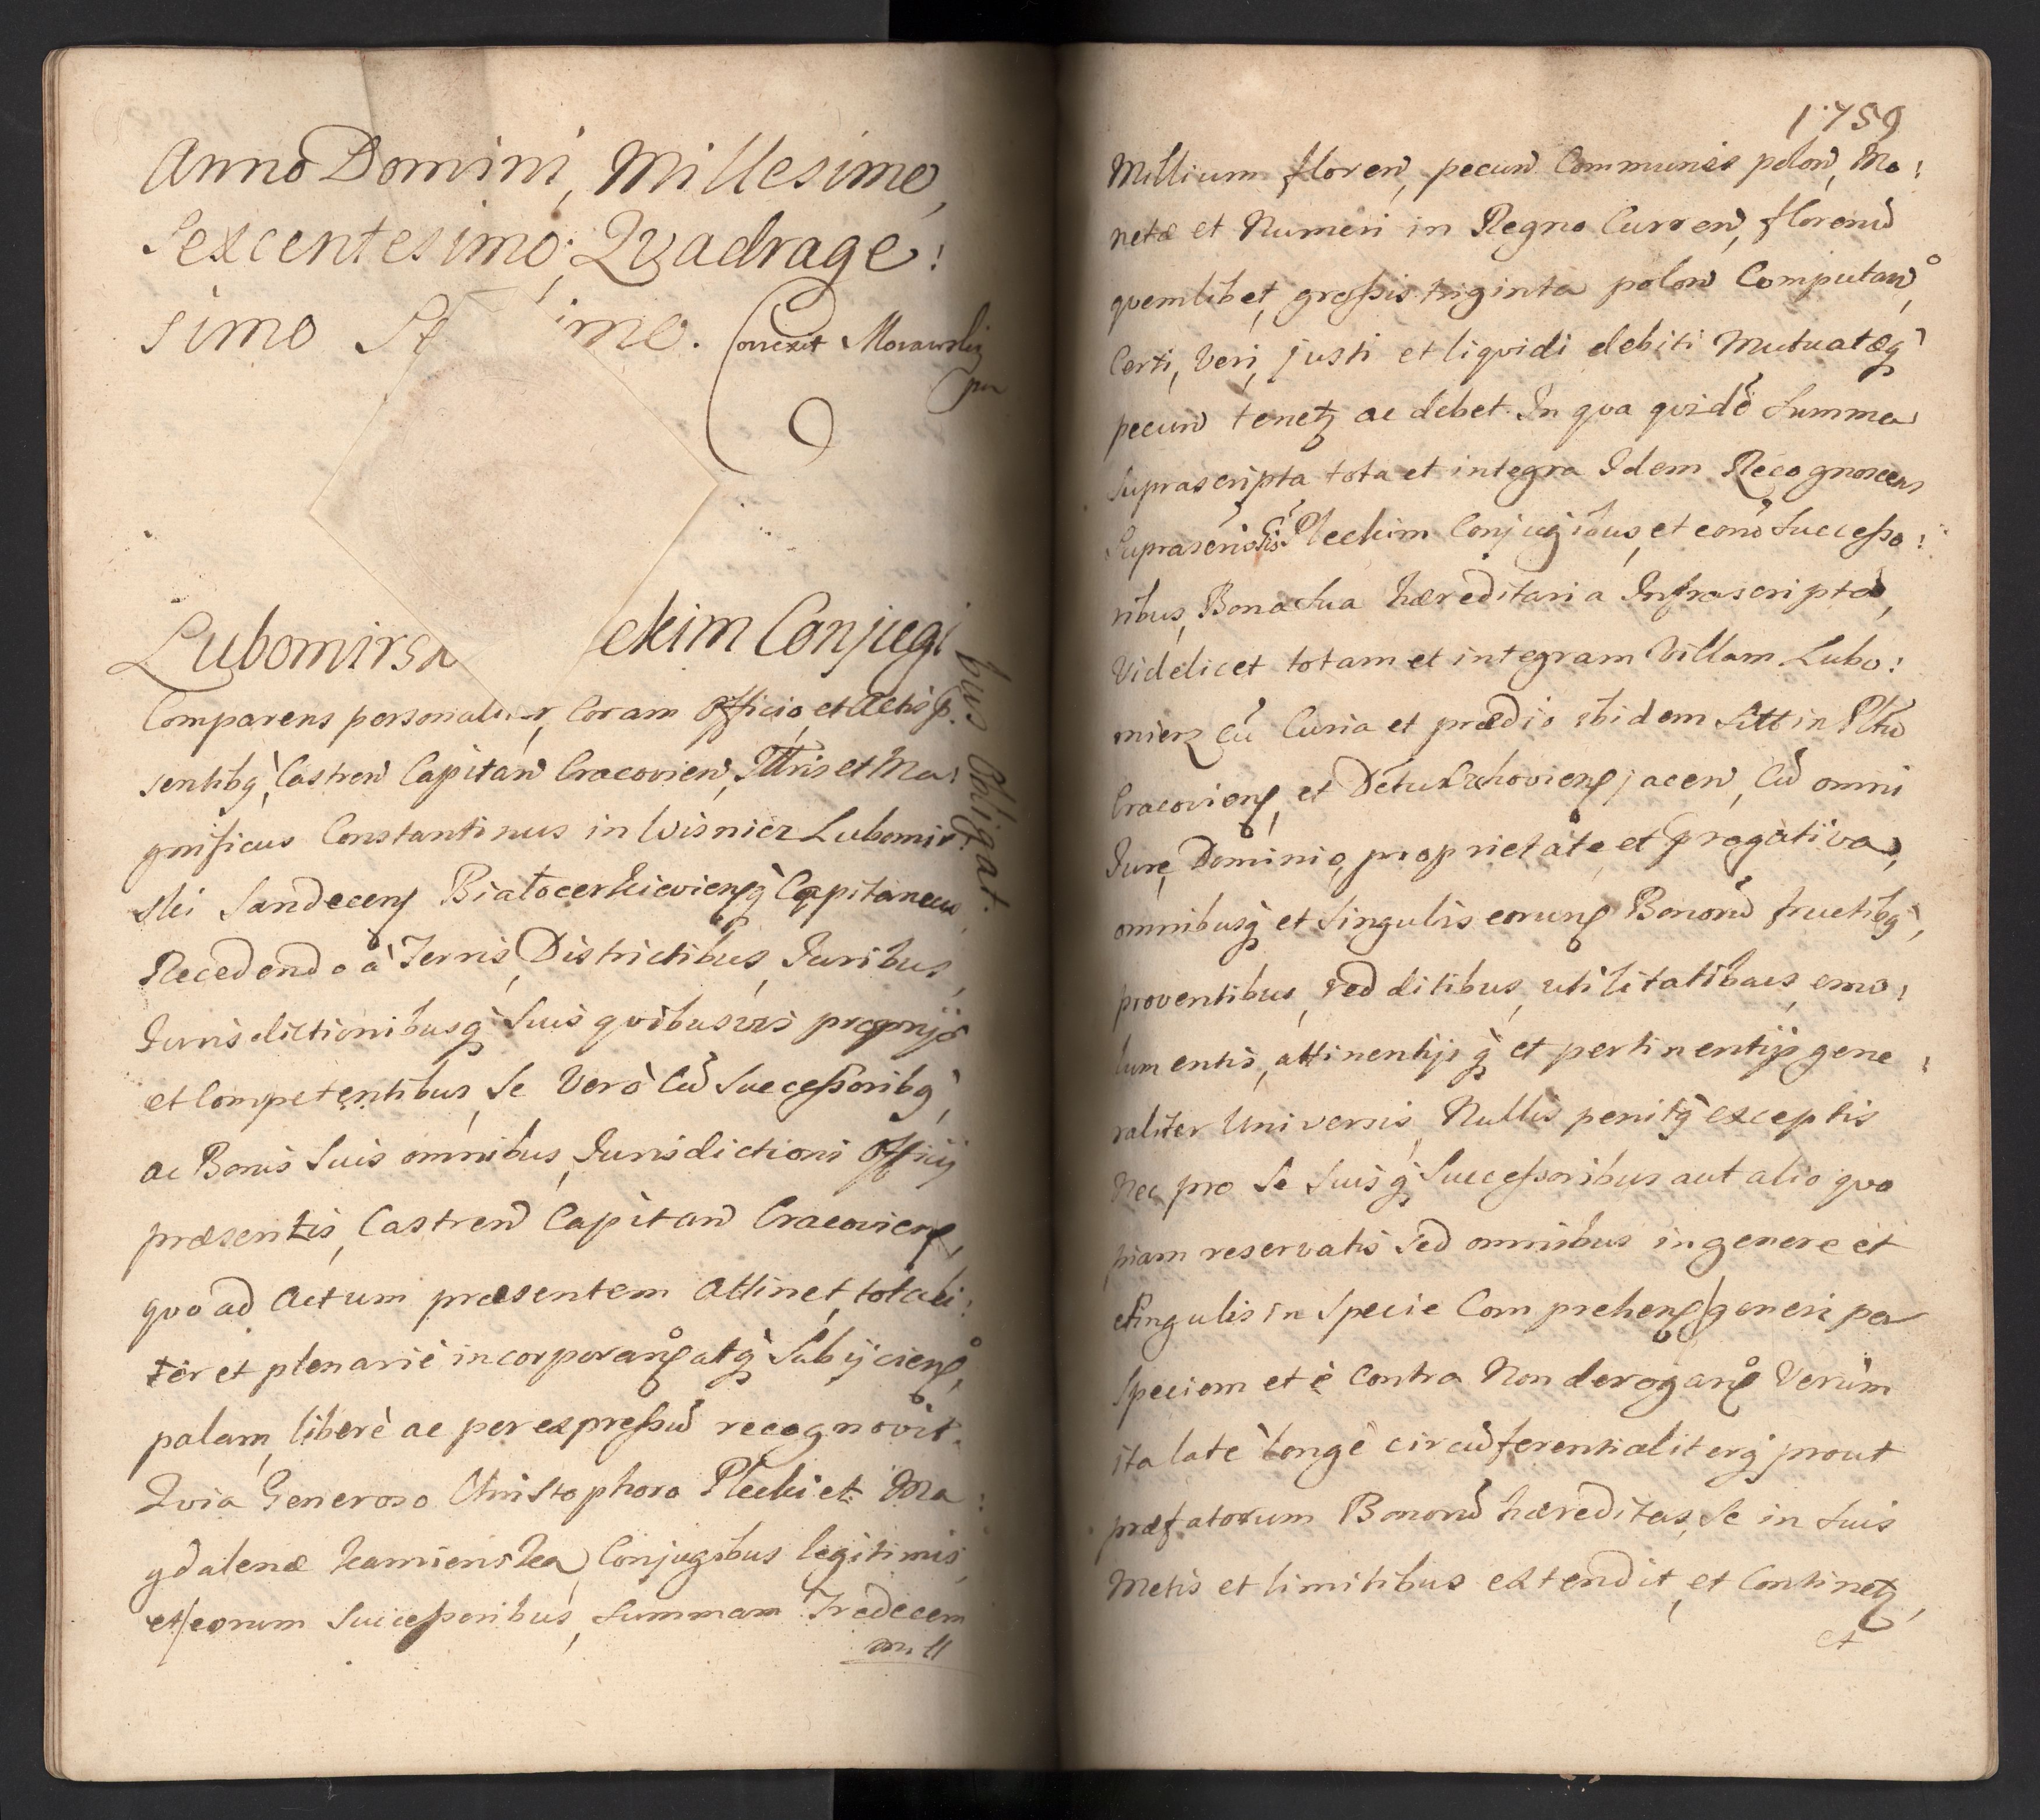 Anno Domini, Millesimo,
Sexcentesimo, Qvadrage:
simo Se imo. Correxit Morawski
mp
Lubomirs ekim Conjugi
bus Obligat.
Comparens personaliter, Coram Officio, et Actis p̃:
sentibq̀, Castren̄ Capitan̄ Cracovien̄, Illris et Ma:
gnificus Constantinus in Wisnicz Lubomir:
ski Sandecen̄ Białocerkieviensq̀ Capitaneus
Recedendo à Terris, Districtibus, Juribus,
Jurisdictionibusq̀ Suis qvibusvis proprijs
et Competentibus, Se Verò Cū Successoribq̀,
ac Bonis Suis omnibus, Jurisdictioni Officij
præsentis, Castren̄ Capitan̄ Cracovien̄,
qvo ad Actum præsentem Attinet, totali:
ter et plenariè incorporan̄ atq̀ Subijcien̄,
palam, liberè ac per expressū recognovit.
Qvia Generoso Christophoro Plecki et Ma:
gdalenæ Kamienska, Conjugibus legitimis,
et eorum Successoribus, Summam Tredecem
mill
1759
Millium floren̄, pecun̄ Communis polon̄, Mo:
netæ et Numeri in Regno Curren̄, florenū
qvemlibet, grossis triginta polon̄ Computan̄,
Certi, Veri, justi et liqvidi debiti Mutuatæq̀
pecun̄ tenetꝫ ac debet. In qva qvidē Summa
Suprascripta tota et integra Idem Recognoscens
Pleckim Conjugibus, et eorū Successo:
ribus, Bona Sua hæreditaria Infrascripta,
Videlicet totam et integram Villam Lubo:
mierz Cū Curia et prædio ibidem Sitt in Pttu
Cracovien̄, et jacen̄, Cū omni
Jure, Dominio, proprietate, et p̃rogativa,
omnibusq̀ et Singulis eorun̄ Bonorū fructibq̀,
proventibus, redditibus, utilitatibus, emo:
lumentis, attinentijsq̀ et pertinentijs gene:
raliter Universis, Nullis penitq̀ exceptis
Nec pro Se Suisq̀ Successoribus aut alio qvo
piam reservatis Sed omnibus in genere et
Singulis in Specie Comprehen̄ generi per
Speciem et è Contra Non derogan̄ Verùm
ita latè longè circūferentialiterq̀ prout
præfatorum Bonorū hæreditas, Se in Suis
Metis et limitibus extendit, et Continetꝫ,
et